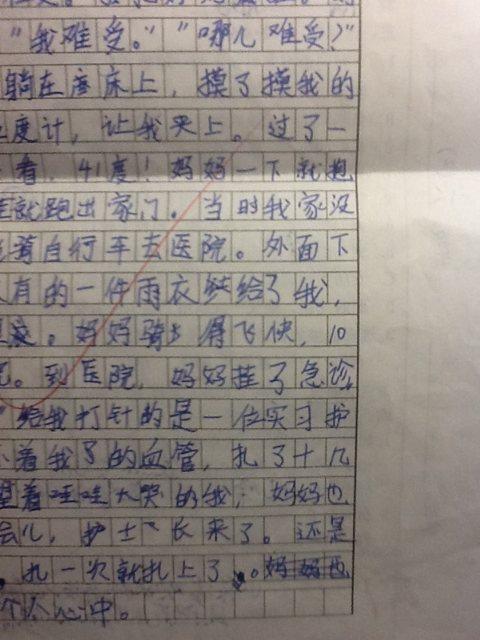 "我难受。""哪儿难受?"
躺在床上,摸了摸我的
度计,让我夹上。过了一
看,41度!妈妈一下就抱
就跑出家门。当时我家没
着自行车去医院。外面下
有的一件雨衣给了我,
。妈妈骑得飞快,10
。到医院,妈妈挂了急诊,
给我打针的是一位实习护
着我了的血管,扎了十几
望着哇哇大哭的我,妈妈也
会儿,护士长来了。还是
。扎一次就扎上了。妈妈也
个人心中。